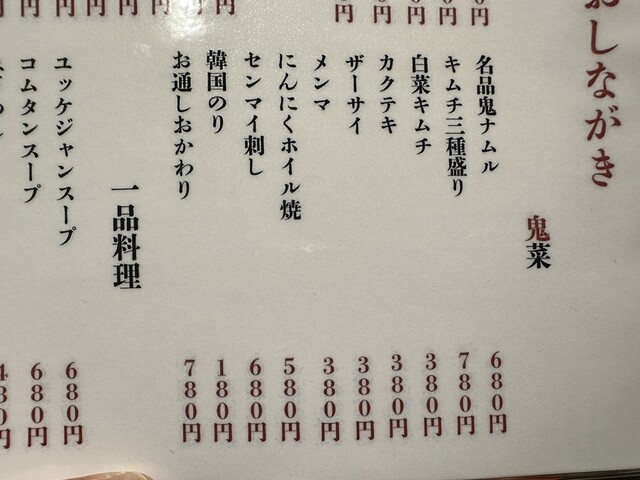 おしながき
鬼菜
名品鬼ナムル 680円
キムチ三種盛り 780円
白菜キムチ 380円
カクテキ 380円
ザーサイ 380円
メンマ 380円
にんにくホイル焼 580円
センマイ刺し 680円
韓国のり 180円
お通しおかわり 780円
一品料理
ユッケジャンスープ 680円
コムタンスープ 680円